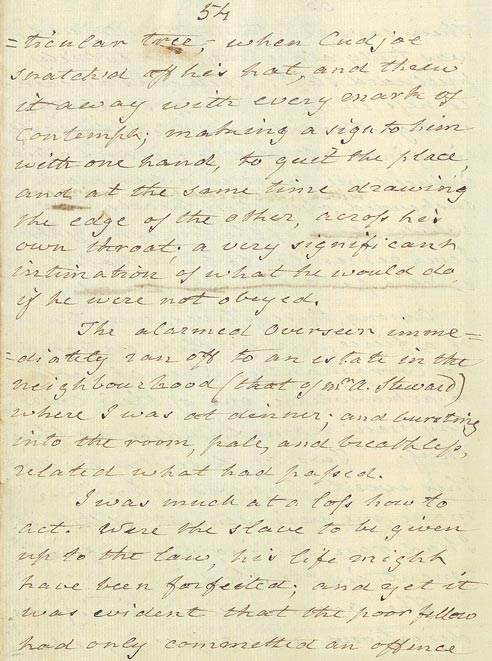 54
=ticular tree,- when Cudjoe
snatch'd off his hat, and threw
it away with every mark of
Contempt; making a sign to him
with one hand, to quit the place,
and at the same time drawing
the edge of the other, across his
own throat; a very significant
intimation of what he would do,
if he were not obeyed.
The alarmed overseer imme=
=diately ran off to an estate in the
neighbourhood (that of Mr. A. Steward)
where I was at dinner; and bursting
into the room, pale, and breathless,
related what had passed.
I was much at a loss how to
act. Were the slave to be given
up to the law, his life might
have been forfeited; and yet it
was evident that the poor fellow
had only committed an offence